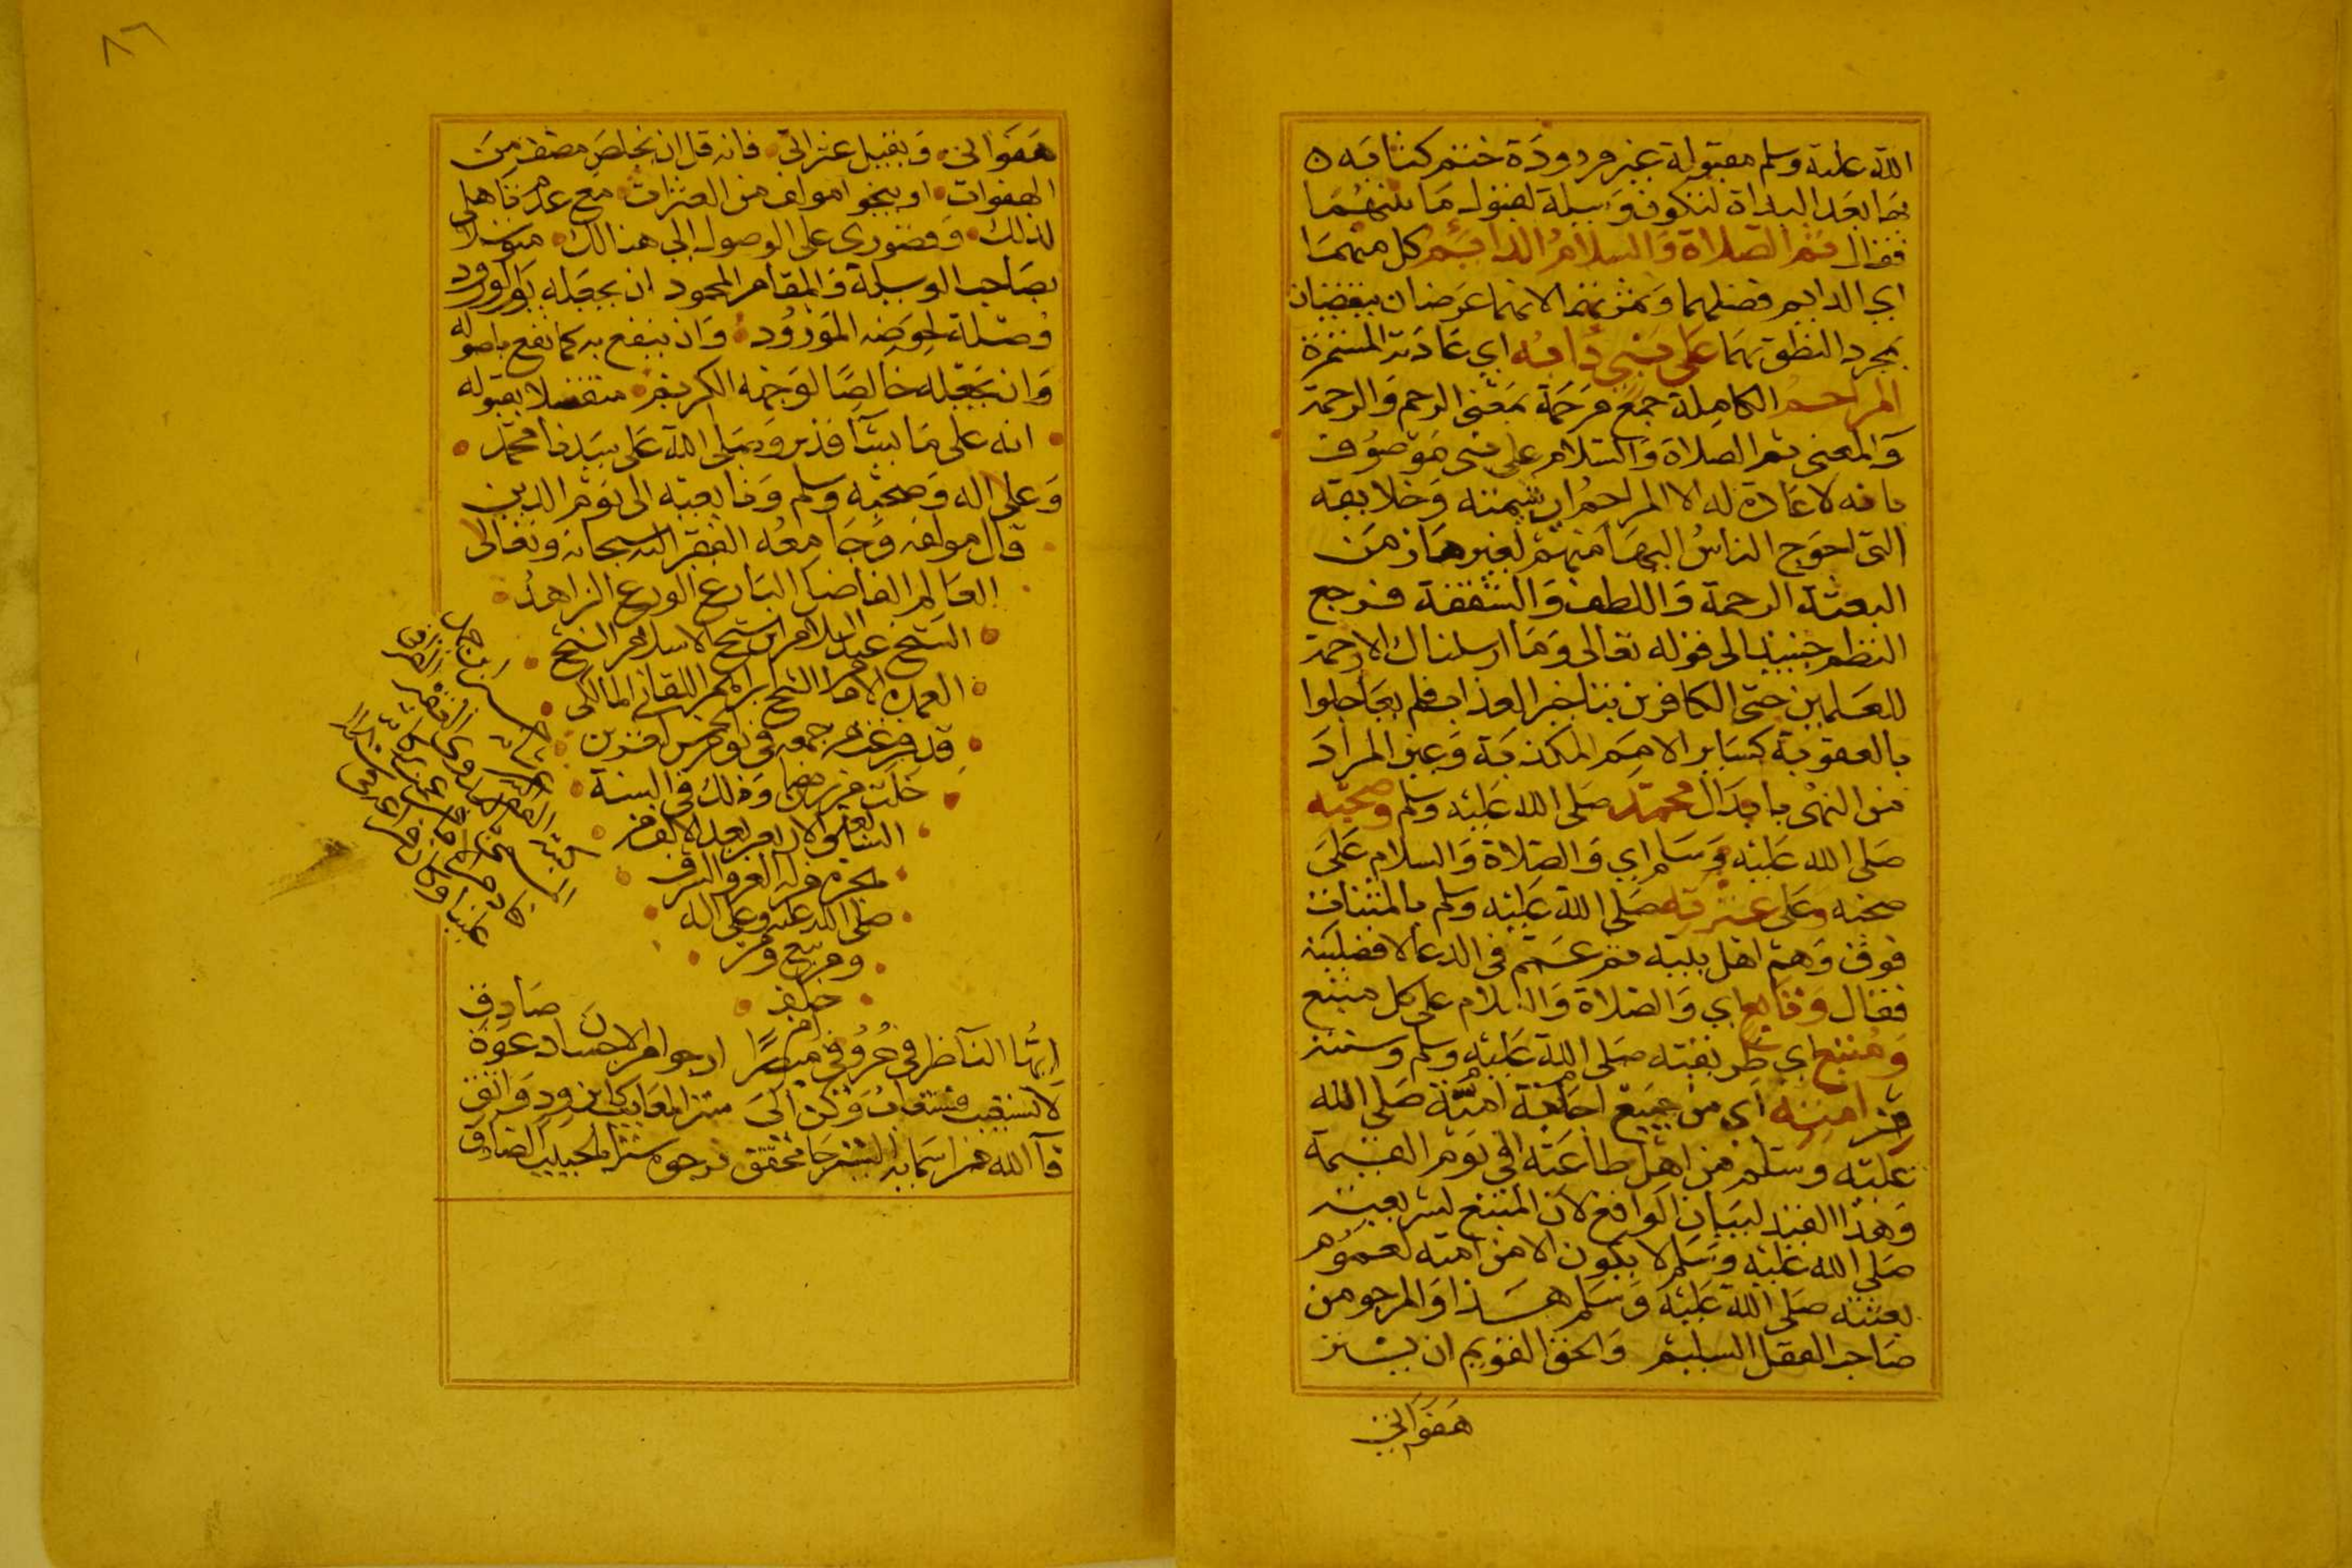 الله عليه وسلم مقبولة غير مردودة ختم كتابه
بها بعد البداة لتكون وسيلة لقبول ما بينهما
فقال ثم الصلاة والسلام الدايم كل منهما
اي الدايم فضلهما وثمرتهما لانهما عرضان ينقضيان
بمجرد النطق بهما على نبي دابه اي عادته المستمرة
المراحم الكاملة جمع مرحمة بمعنى الرحم والرحمة
والمعنى ثم الصلاة والسلام على نبي موصوف
بانه لا عادة له الا المراحم اي شيمته وخلايقه
التي احوج الناس اليها منهم لغيرها زمن
البعثة الرحمة واللطف والشفقة فرجع
النظم حينيذ الى قوله تعالى وما ارسلناك الا رحمة
للعلمين حتى الكافرين بتاخير العذاب فلم يعاجلوا
بالعقوبة كساير الامم المكذبة وعين المراد
من النبي بابدال محمد صلى الله عليه وسلم وصحبه
صلى الله عليه وسلم اي والصلاة والسلام على
صحبه وعلى عترته صلى الله عليه وسلم بالمثناة
فوق وهم اهل بيته ثم عمم في الدعا لافضليته
فقال وتابع اي والصلاة والسلام على كل متبع
ومتبع اي طريقته صلى الله عليه وسلم وسنته
من امته اي من جميع اجابة امته صلى الله
عليه وسلم من اهل طاعته الى يوم القيمة
وهذا القيد لبيان الواقع لان المتبع لشريعته
صلى الله عليه وسلم لا يكون الا من امته لعموم
بعثته صلى الله عليه وسلم هذا والمرجو من
صاحب العقل السليم والخلق القويم ان يستر
هفواتي
٨٦
هفواتي ويقيل عثراتي فانه قل ان يخلص مصنف من
الهفوات او ينجو مولف من العثرات مع عدم تاهلي
لذلك وقصوري على الوصول الى هنالك متوسلا
بصاحب الوسيلة والمقام المحمود ان يجعله يوم الورود
وصلة لحوضه المورود وان ينفع به كما نفع باصوله
وان يجعله خالصا لوجهه الكريم متفضلا بقبوله
انه على ما يشآ قدير وصلى الله على سيدنا محمد
وعلى اله وصحبه وسلم وتابعيه الى يوم الدين
قال مولفه وجامعه الفقير الى الله سبحانه وتعالى
العالم الفاضل البارع الورع الزاهد
الشيخ عبد السلام ابن شيخ الاسلام الشيخ
العمدة الامام الشيخ ابراهيم اللقاني المالكي
قد فرغ من جمعه في يوم الخميس
خلت من رمضان وذلك في السنة
السابعة والاربعين بعد الالف من
هجرة من له العز والشرف
صلى الله عليه وعلى اله
ومن تبع
خلف
ايها الناظر في حروفي مبصرا ارجو من الاحسان دعوة صادق
لا تستعيب وكن الى ستر المعايب
فالله من اسمايه الستر محقق نرجوه سترا بالحبيب الصادق